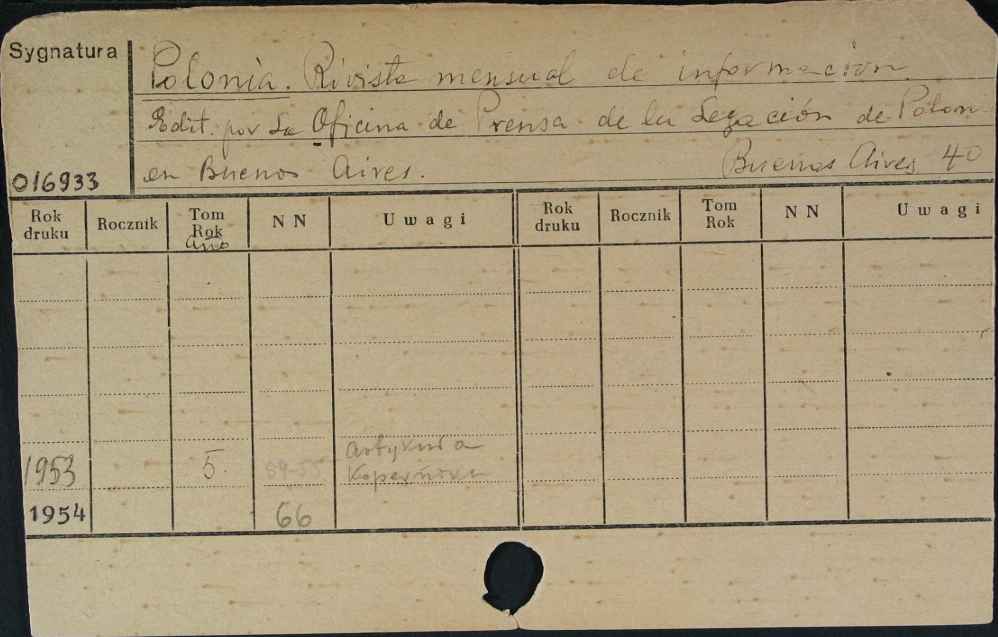 Sygnatura
Polonia. Rivista mensual de informacion.
Edit. por La Oficina de Prensa de la Legación de Polon
en Buenos Aires. Buenos Aires 4o
016933
Rok druku Rocznik Tom Rok Año N N Uwagi Rok druku Rocznik Tom Rok N N Uwagi
artykuł o
1953 5. 54-55
1954 66